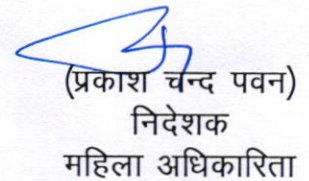 (प्रकाश चन्द पवन)
निदेशक
महिला अधिकारिता